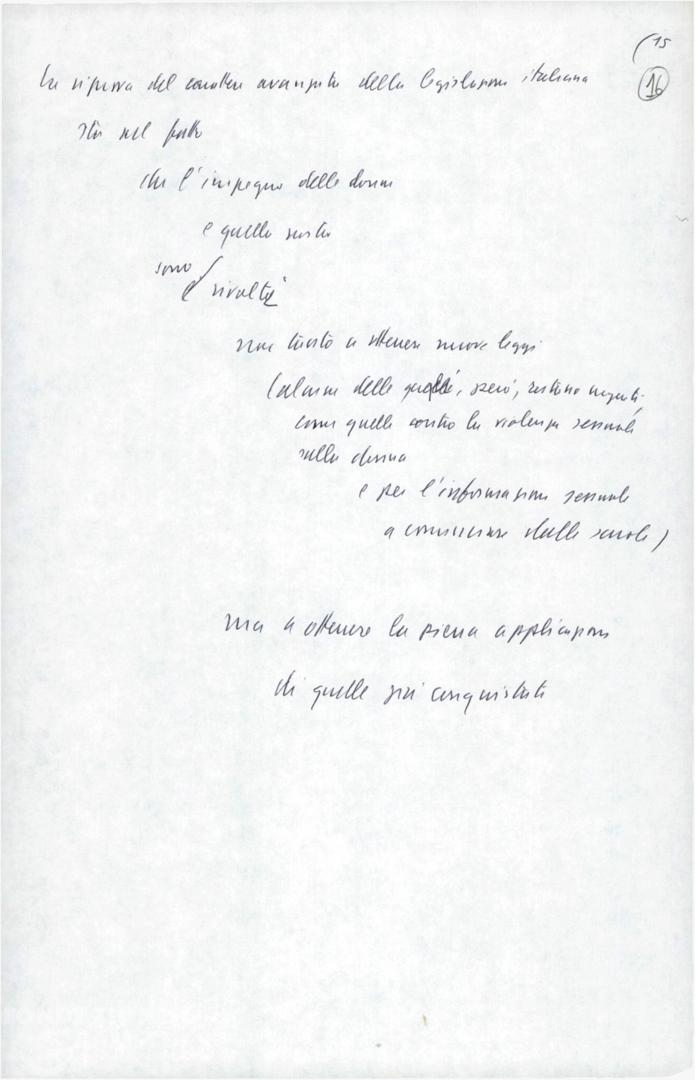 (15
16
La riprova del carattere avanzato della legislazione italiana
sta nel fatto
che l'impegno delle donne
e quello nostro
sono
è rivolto
non tanto a ottenere nuove leggi
(alcune delle quali, però, restano urgenti
come quelle contro la violenza sessuale
sulla donna
e per l'informazione sessuale
a cominciare dalle scuole)
ma a ottenere la piena applicazione
di quelle già conquistate